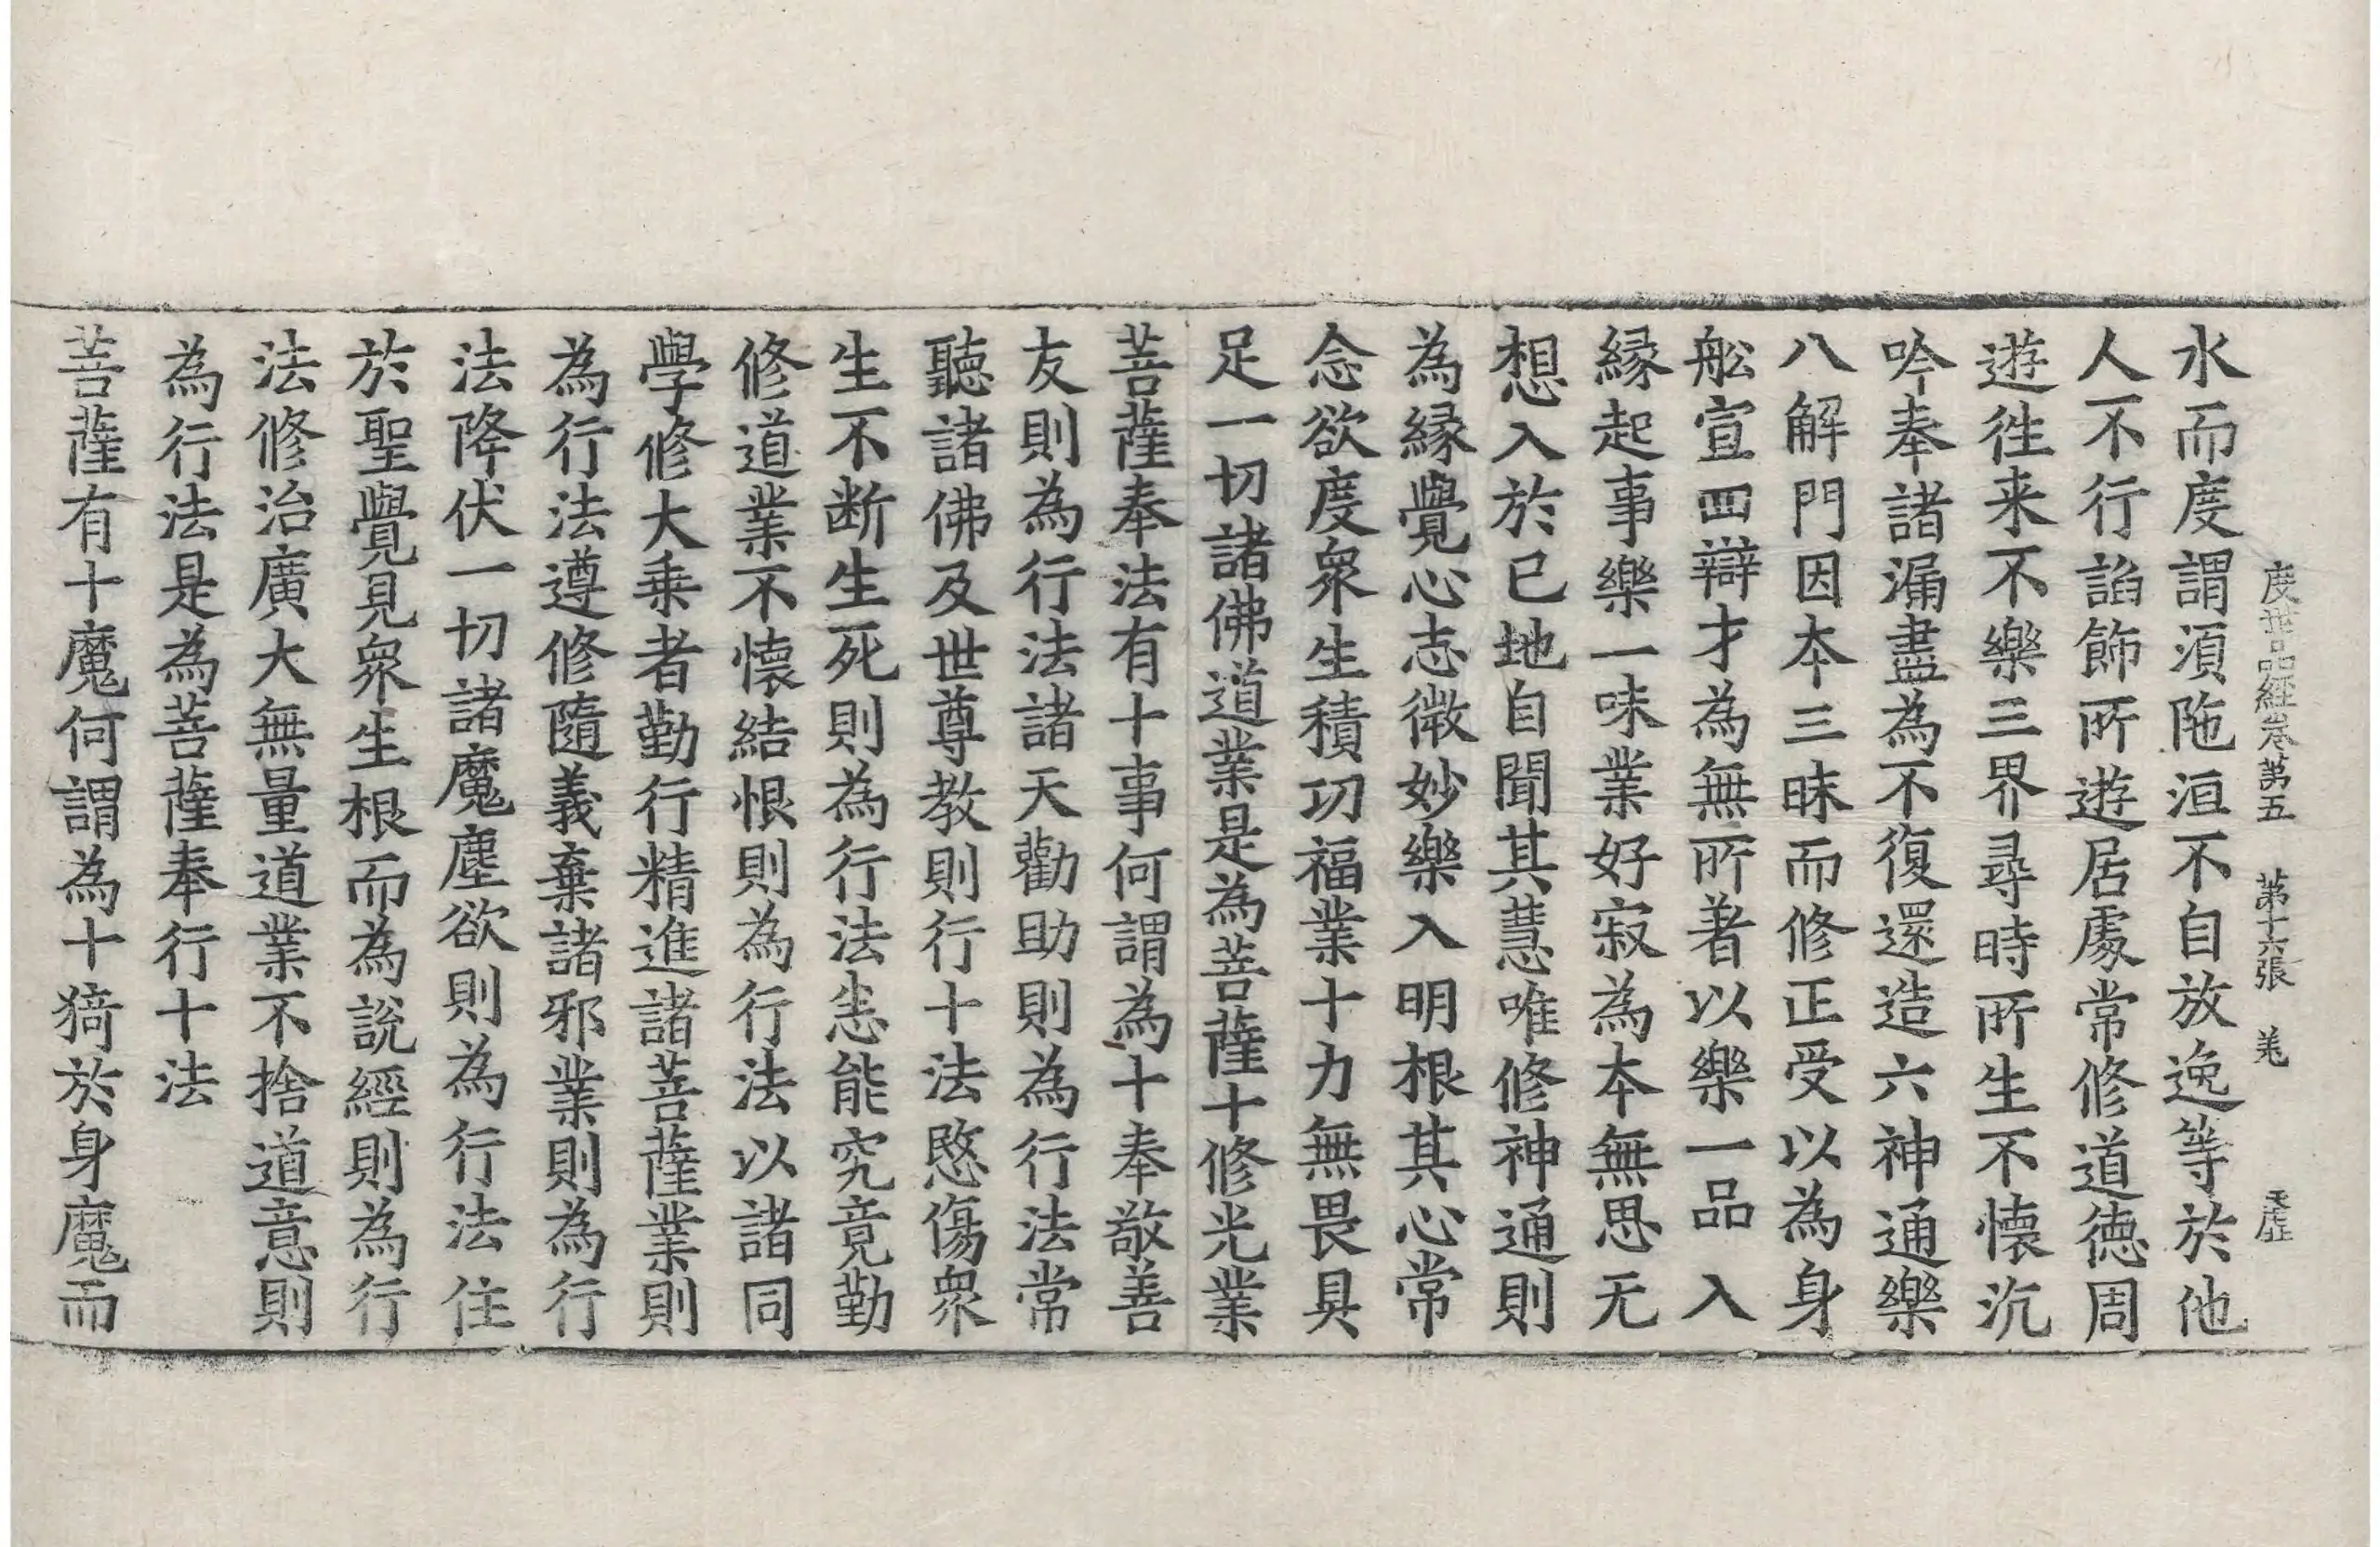 度世品經卷第五 第十六張 羌
水而度謂須陁洹不自放逸等於他
人不行諂飾所遊居處常修道德周
遊徃来不樂三界尋時所生不懷沉
吟奉諸漏盡為不復還造六神通樂
八解門因本三昧而修正受以為身
舩宣四辯才為無所著以樂一品入
縁起事樂一味業好寂為本無思无
想入於已地自聞其慧唯修神通則
為縁覺心志微妙樂入明根其心常
念欲度衆生積功福業十力無畏具
足一切諸佛道業是為菩薩十修光業
菩薩奉法有十事何謂為十奉敬善
友則為行法諸天勸助則為行法常
聽諸佛及世尊教則行十法愍傷衆
生不断生死則為行法恙能究竟勤
修道業不懷結恨則為行法以諸同
學修大乗者勤行精進諸菩薩業則
為行法遵修隨義棄諸邪業則為行
法降伏一切諸魔塵欲則為行法住
於聖覺見衆生根而為說經則為行
法修治廣大無量道業不捨道意則
為行法是為菩薩奉行十法
菩薩有十魔何謂為十猗於身魔而